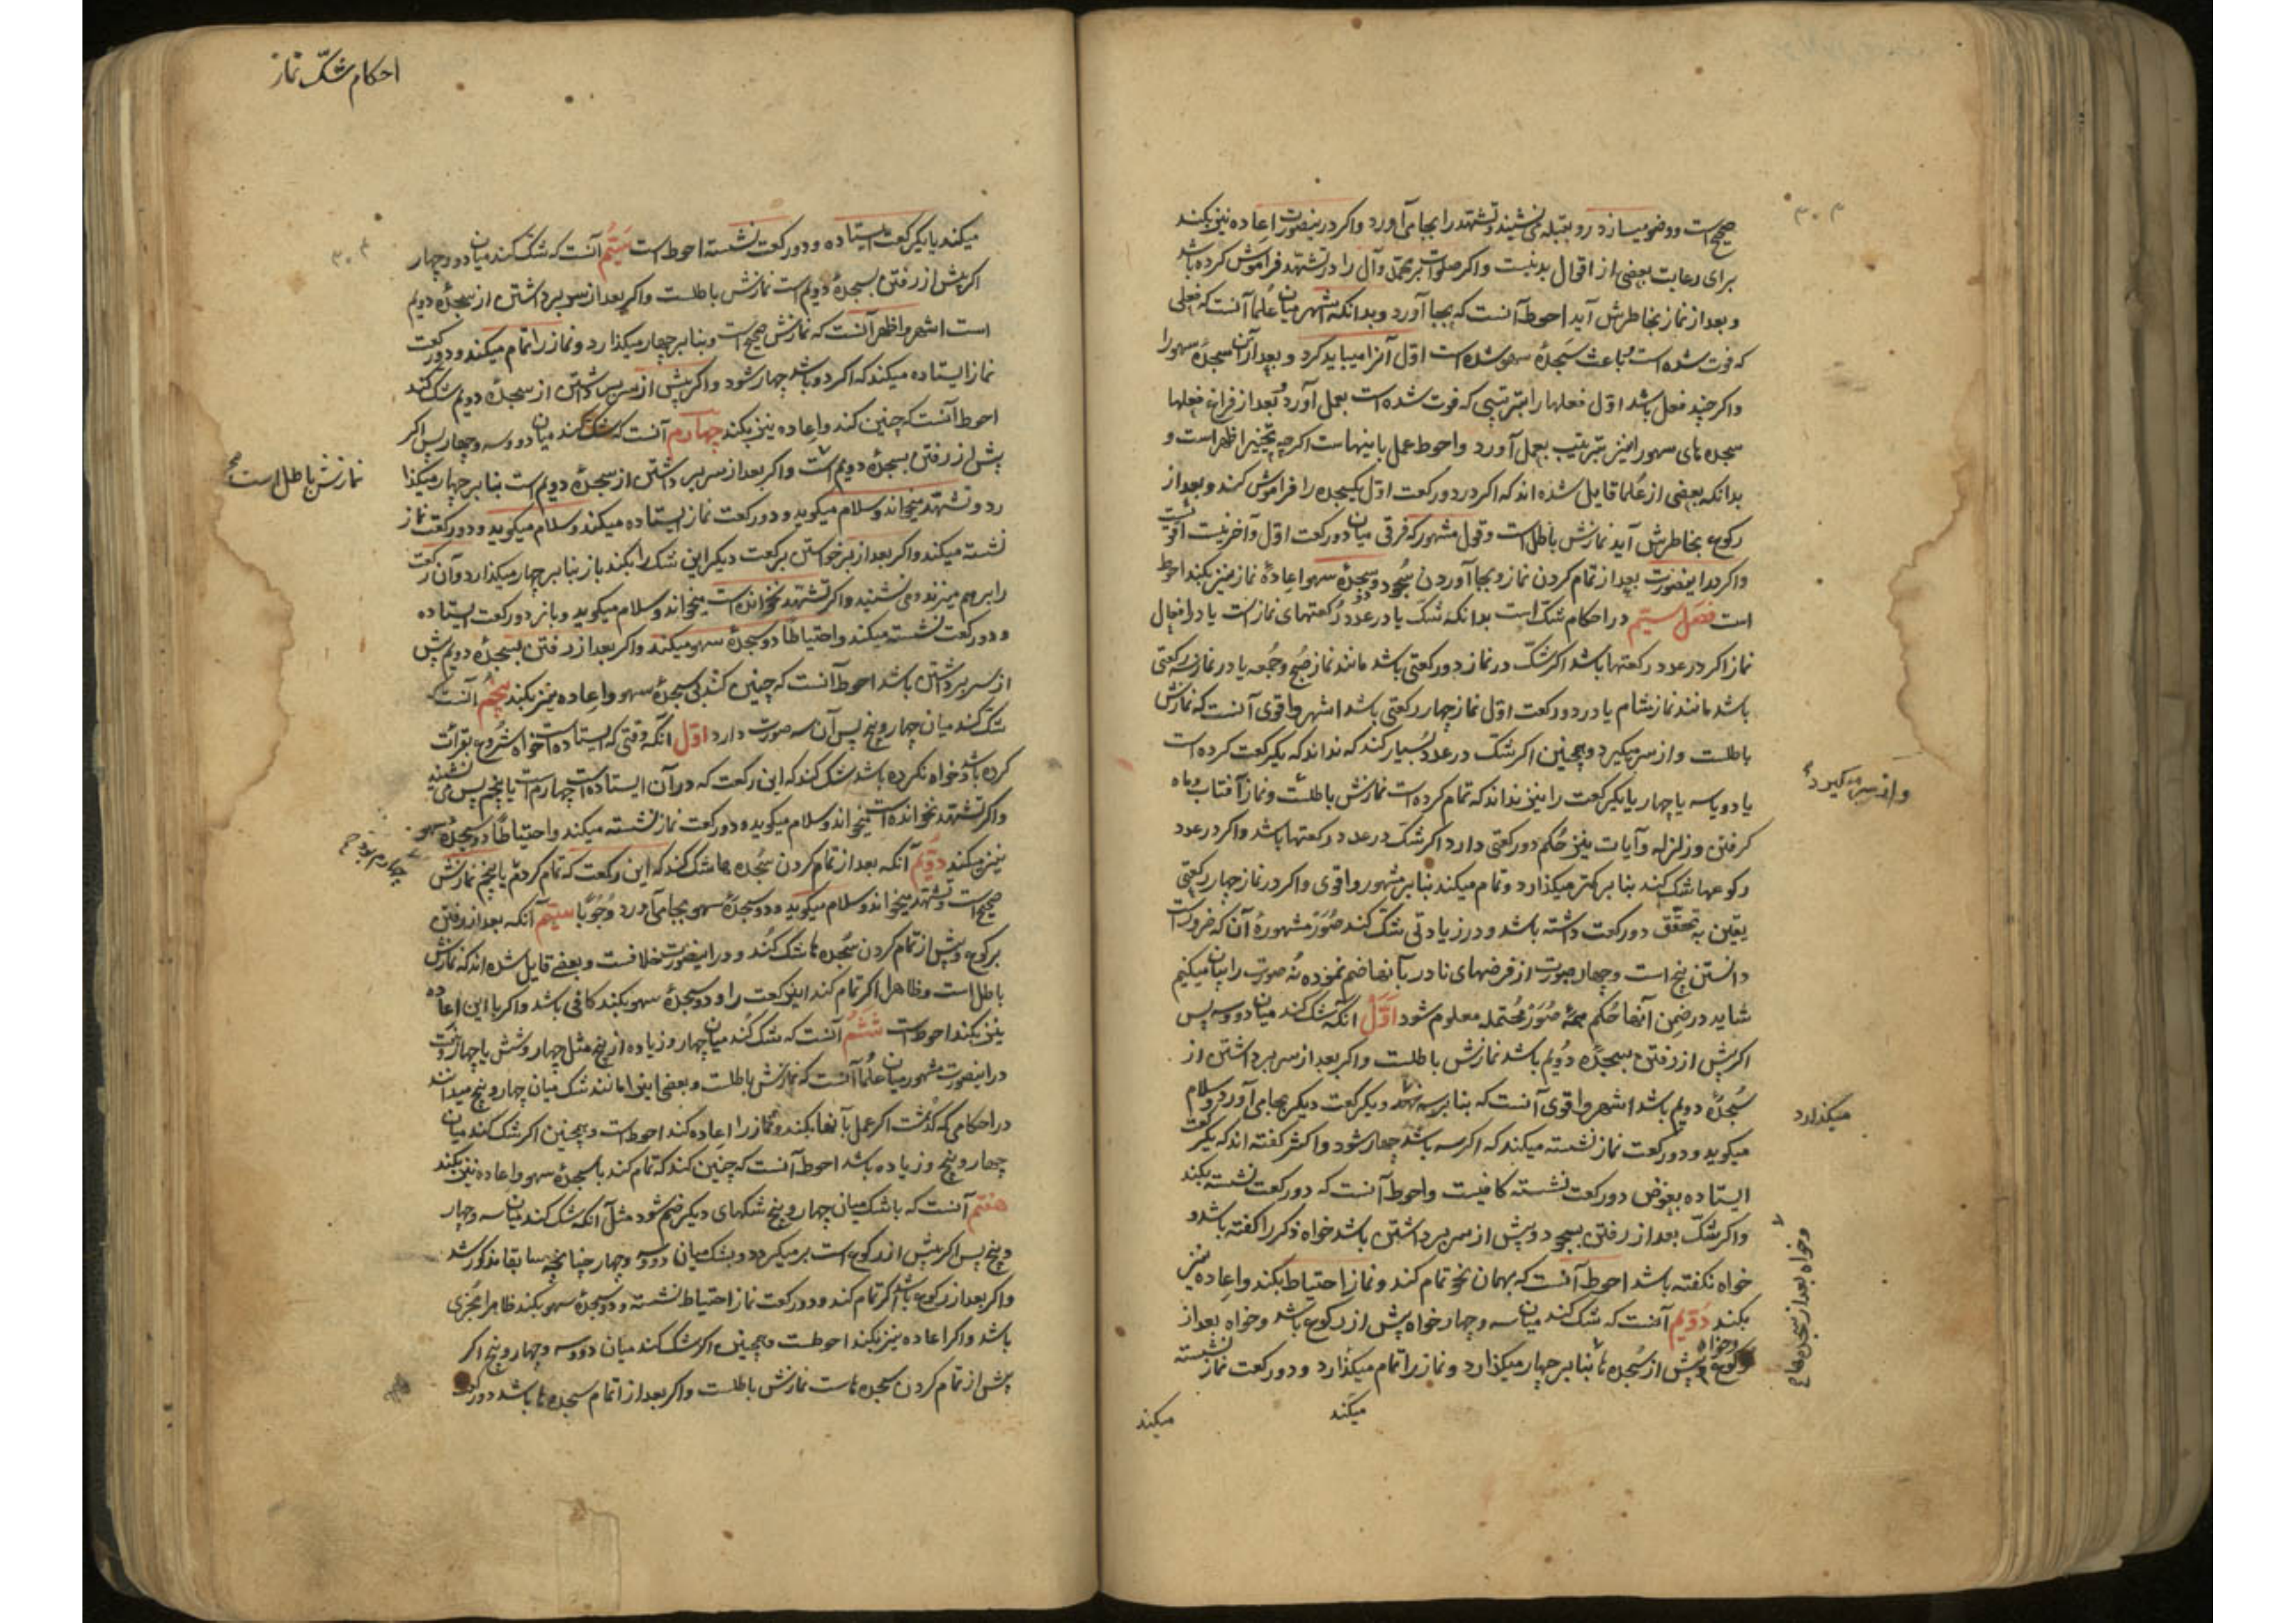 صحیح است و وضو میسازد و رو بقبله می نشیند و تشهد را بجا می آورد و اکر درینصورت اعاده نیز بکند
برای رعایت بعضی از اقوال بد نیست و اکر صلوات بر محمد و آل را در تشهد فراموش کرده باشد
و بعد از نماز بخاطرش آید احوط آنست که بجا آورد و بدانکه اشهر میان علما آنست که فعلی
که فوت شده است و باعث سجدهٔ سهو شده است اول آنرا میباید کرد و بعد از آن سجدهٔ سهو را
و اکر چند فعل باشد اول فعلها را بترتیبی که فوت شده است بعمل آورد و بعد از فراغ فعلها
سجده های سهو را نیز بترتیب بعمل آورد و احوط عمل باینهاست اکرچه تخییر اظهر است و
بدانکه بعضی از علما قایل شده اند که اکر در دو رکعت اول یکسجده را فراموش کند و بعد از
رکوع بخاطرش آید نمازش باطل است و قول مشهور که فرقی میان دو رکعت اول و آخر نیست اقویست
و اکر در اینصورت بعد از تمام کردن نماز و بجا آوردن سجود و دو سجدهٔ سهو اعادهٔ نماز نیز بکند احوط
است فصل سیم در احکام شک است بدانکه شک یا در عدد رکعتهای نماز است یا در افعال
نماز اکر در عدد رکعتها باشد اکر شک در نماز دو رکعتی باشد مانند نماز صبح و جمعه یا در نماز سه رکعتی
باشد مانند نماز شام یا در دو رکعت اول نماز چهار رکعتی باشد اشهر و اقوی آنست که نمازش
باطلست و از سر میکیرد و همچنین اکر شک در عدد بسیار کند که نداند که یکرکعت کرده است
یا دو یا سه یا چهار یا یکرکعت را نیز نداند که تمام کرده است نمازش باطلست و نماز آفتاب و ماه
و از سر میکیرد
کرفتن و زلزله و آیات نیز حکم دو رکعتی دارد اکر شک در عدد رکعتها باشد و اکر در عدد
رکوعها شک کند بنا بر کمتر میکذارد و تمام میکند بنا بر مشهور و اقوی و اکر در نماز چهار رکعتی
یقین به تحقق دو رکعت داشته باشد و در زیادتی شک کند صور مشهورهٔ آن که ضرور است
دانستن پنج است و چهار صورت از فرضهای نادر بآنها ضم نموده نه صورت را بیان میکنیم
شاید در ضمن آنها حکم همهٔ صور محتمله معلوم شود اول آنکه شک کند میان دو و سه پس
اکر پیش از رفتن بسجدهٔ دویم باشد نمازش باطلست و اکر بعد از سر برداشتن از
سجدهٔ دویم باشد اشهر و اقوی آنست که بنا بر سه نهد و یکرکعت دیکر بجا می آورد و سلام
میکذارد
میکوید و دو رکعت نماز نشسته میکند که اکر سه باشد چهار شود و اکثر کفته اند که یکرکعت
ایستاده بعوض دو رکعت نشسته کافیست و احوط آنست که دو رکعت نشسته بکند
و اکر شک بعد از رفتن بسجود و پیش از سر برداشتن باشد خواه ذکر را کفته باشد و
خواه نکفته باشد احوط آنست که بهمان نحو تمام کند و نماز احتیاط بکند و اعاده نیز
بکند دویم آنست که شک کند میان سه و چهار خواه پیش از رکوع باشد و خواه بعد از
رکوع و خواه پیش از سجده ها بنا بر چهار میکذارد و نماز را تمام میکذارد و دو رکعت نماز نشسته
و خواه بعد از سجده ها
میکند
میکند
احکام شک نماز
میکند یا یکرکعت ایستاده و دو رکعت نشسته احوط است سیم آنست که شک کند میان دو و چهار
اکر پیش از رفتن بسجدهٔ دویم است نمازش باطلست و اکر بعد از سر برداشتن از سجدهٔ دویم
است اشهر و اظهر آنست که نمازش صحیح است و بنا بر چهار میکذارد و نماز را تمام میکند و دو رکعت
نماز ایستاده میکند که اکر دو باشد چهار شود و اکر پیش از سر برداشتن از سجدهٔ دویم شک کند
احوط آنست که چنین کند و اعاده نیز بکند چهارم آنست که شک کند میان دو و سه و چهار پس اکر
پیش از رفتن بسجدهٔ دویم است و اکر بعد از سر برداشتن از سجدهٔ دویم است بنا بر چهار میکذا
نمازش باطل است
رد و تشهد میخواند و سلام میکوید و دو رکعت نماز ایستاده میکند و سلام میکوید و دو رکعت نماز
نشسته میکند و اکر بعد از برخواستن برکعت دیکر این شک را بکند باز بنا بر چهار میکذارد و آن رکعت
را برهم میزند و می نشیند و اکر تشهد نخوانده است میخواند و سلام میکوید و باز دو رکعت ایستاده
و دو رکعت نشسته میکند و احتیاطا دو سجدهٔ سهو میکند و اکر بعد از رفتن بسجدهٔ دویم پیش
از سر برداشتن باشد احوط آنست که چنین کند بی سجدهٔ سهو و اعاده نیز بکند پنجم آنست که
شک کند میان چهار و پنج پس آن سه صورت دارد اول آنکه وقتی که ایستاده است خواه شروع بقرائت
کرده باشد و خواه نکرده باشد شک کند که این رکعت که در آن ایستاده است چهارم است یا پنجم پس می نشیند
و اکر تشهد نخوانده است میخواند و سلام میکوید و دو رکعت نماز نشسته میکند و احتیاطا دو سجدهٔ سهو
نیز میکند دویم آنکه بعد از تمام کردن سجده ها شک کند که این رکعت که تمام کردم یا پنجم نمازش
چهارم بود
صحیح است و تشهد میخواند و سلام میکوید و دو سجدهٔ سهو بجا می آورد وجوبا سیم آنکه بعد از رفتن
برکوع و پیش از تمام کردن سجده ها شک کند و در اینصورت خلافست و بعضی قایل شده اند که نمازش
باطل است و ظاهرا اکر تمام کند این رکعت را و دو سجدهٔ سهو بکند کافی باشد و اکر با این اعاده
نیز بکند احوط است ششم آنست که شک کند میان چهار و زیاده از پنج مثل چهار و شش یا چهار و هفت
در اینصورت مشهور میان علما آنست که نمازش باطلست و بعضی این را مانند شک میان چهار و پنج میدانند
در احکامی که کذشت اکر عمل بآنها بکند و نماز را اعاده کند احوط است و همچنین اکر شک کند میان
چهار و پنج و زیاده باشد احوط آنست که چنین کند که تمام کند با سجدهٔ سهو و اعاده نیز بکند
هفتم آنست که با شک میان چهار و پنج شکهای دیکر ضم شود مثل آنکه شک کند میان سه و چهار
و پنج پس اکر پیش از رکوع است برمیکردد و بشک میان دو و سه و چهار چنانچه سابقا مذکور شد
و اکر بعد از رکوع باشد اکر تمام کند و دو رکعت نماز احتیاط نشسته و دو سجدهٔ سهو بکند ظاهرا مجزی
باشد و اکر اعاده نیز بکند احوطست و همچنین اکر شک کند میان دو و سه و چهار و پنج اکر
پیش از تمام کردن سجده هاست نمازش باطلست و اکر بعد از اتمام سجده ها باشد دو رکعت